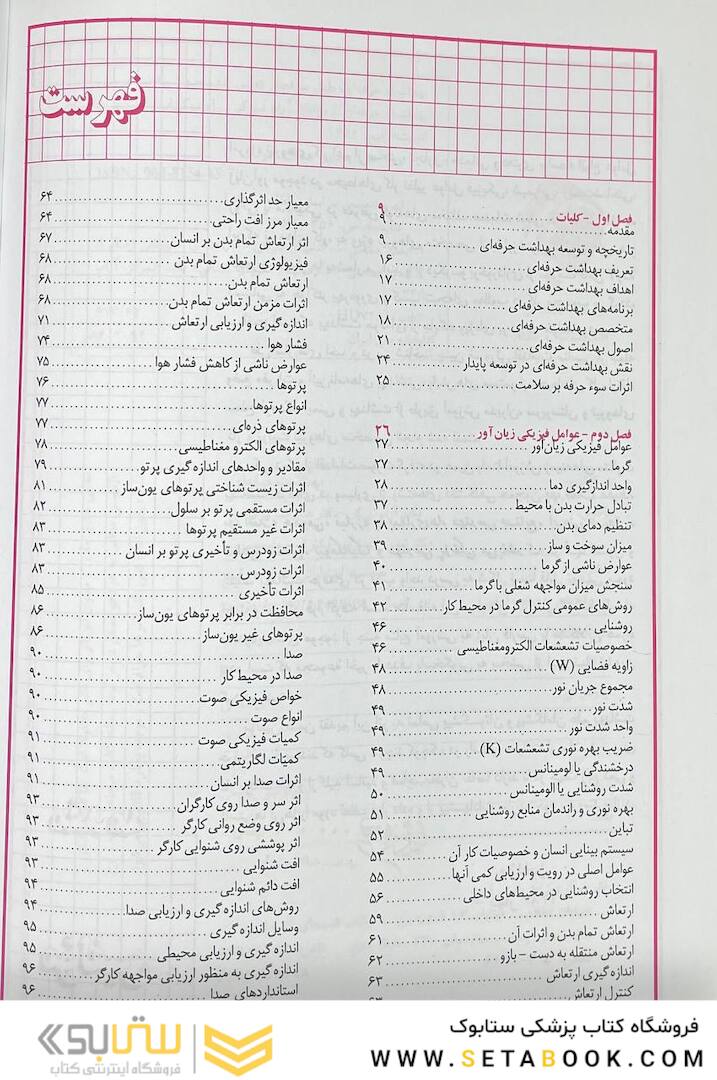 فهرست
فصل اول - کلیات ۹
مقدمه ۹
تاریخچه و توسعه بهداشت حرفه‌ای ۹
تعریف بهداشت حرفه‌ای ۱۶
اهداف بهداشت حرفه‌ای ۱۷
برنامه‌های بهداشت حرفه‌ای ۱۷
متخصص بهداشت حرفه‌ای ۱۸
اصول بهداشت حرفه‌ای ۲۱
نقش بهداشت حرفه‌ای در توسعه پایدار ۲۴
اثرات سوء حرفه بر سلامت ۲۵
فصل دوم - عوامل فیزیکی زیان آور ۲۶
عوامل فیزیکی زیان‌آور ۲۷
گرما ۲۷
واحد اندازگیری دما ۲۸
تبادل حرارت بدن با محیط ۳۷
تنظیم دمای بدن ۳۸
میزان سوخت و ساز ۳۹
عوارض ناشی از گرما ۴۰
سنجش میزان مواجهه شغلی با گرما ۴۱
روش‌های عمومی کنترل گرما در محیط کار ۴۲
روشنایی ۴۶
خصوصیات تشعشعات الکترومغناطیسی ۴۶
زاویه فضایی (W) ۴۸
مجموع جریان نور ۴۸
شدت نور ۴۹
واحد شدت نور ۴۹
ضریب بهره نوری تشعشعات (K) ۴۹
درخشندگی یا لومینانس ۴۹
شدت روشنایی یا الومینانس ۵۰
بهره نوری و راندمان منابع روشنایی ۵۱
تباین ۵۲
سیستم بینایی انسان و خصوصیات کار آن ۵۴
عوامل اصلی در رویت و ارزیابی کمی آنها ۵۵
انتخاب روشنایی در محیط‌های داخلی ۵۶
ارتعاش ۵۹
ارتعاش تمام بدن و اثرات آن ۶۱
ارتعاش منتقله به دست - بازو ۶۲
اندازه گیری ارتعاش ۶۳
کنترل ارتعاش ۶۳
معیار حد اثرگذاری ۶۴
معیار مرز افت راحتی ۶۴
اثر ارتعاش تمام بدن بر انسان ۶۷
فیزیولوژی ارتعاش تمام بدن ۶۸
ارتعاش تمام بدن ۶۸
اثرات مزمن ارتعاش تمام بدن ۶۸
اندازه گیری و ارزیابی ارتعاش ۷۱
فشار هوا ۷۴
عوارض ناشی از کاهش فشار هوا ۷۵
پرتوها ۷۶
انواع پرتوها ۷۷
پرتوهای ذره‌ای ۷۷
پرتوهای الکترو مغناطیسی ۷۸
مقادیر و واحدهای اندازه گیری پرتو ۷۹
اثرات زیست شناختی پرتوهای یون‌ساز ۸۱
اثرات مستقمی پرتو بر سلول ۸۲
اثرات غیر مستقیم پرتوها ۸۳
اثرات زودرس و تأخیری پرتو بر انسان ۸۳
اثرات زودرس ۸۳
اثرات تأخیری ۸۵
محافظت در برابر پرتوهای یون‌ساز ۸۶
پرتوهای غیر یون‌ساز ۸۶
صدا ۹۰
صدا در محیط کار ۹۰
خواص فیزیکی صوت ۹۰
انواع صوت ۹۰
کمیات فیزیکی صوت ۹۱
کمیّات لگاریتمی ۹۱
اثرات صدا بر انسان ۹۱
اثر سر و صدا روی کارگران ۹۳
اثر روی وضع روانی کارگر ۹۳
اثر پوششی روی شنوایی کارگر ۹۳
افت شنوایی ۹۳
افت دائم شنوایی ۹۴
روش‌های اندازه گیری و ارزیابی صدا ۹۴
وسایل اندازه گیری ۹۵
اندازه گیری و ارزیابی محیطی ۹۵
اندازه گیری به منظور ارزیابی مواجهه کارگر ۹۶
استانداردهای صدا ۹۶
فروشگاه کتاب پزشکی ستابوک
WWW.SETABOOK.COM
ستابوک
فروشگاه اینترنتی کتاب